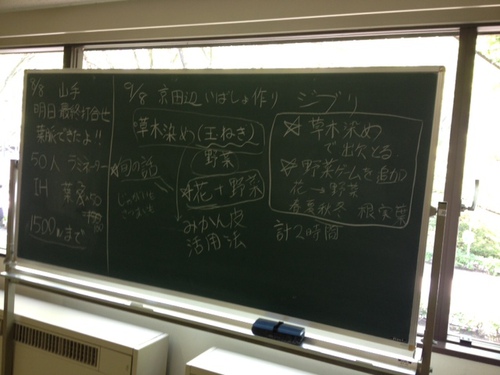 9/8 山手
明日最終打合せ
葉脈できたよ!!
50人 ラミネーター
IH 葉
1500wまで
9/8 京田辺 いばしょ作り ジブリ
草木染め(玉ねぎ)
野菜
☆旬の話
じゃがいも
さつまいも
☆花+野菜
みかん皮
活用法
☆草木染め
で出欠とる
☆野菜ゲームを追加
花→野菜
春夏秋冬 根実葉
計2時間